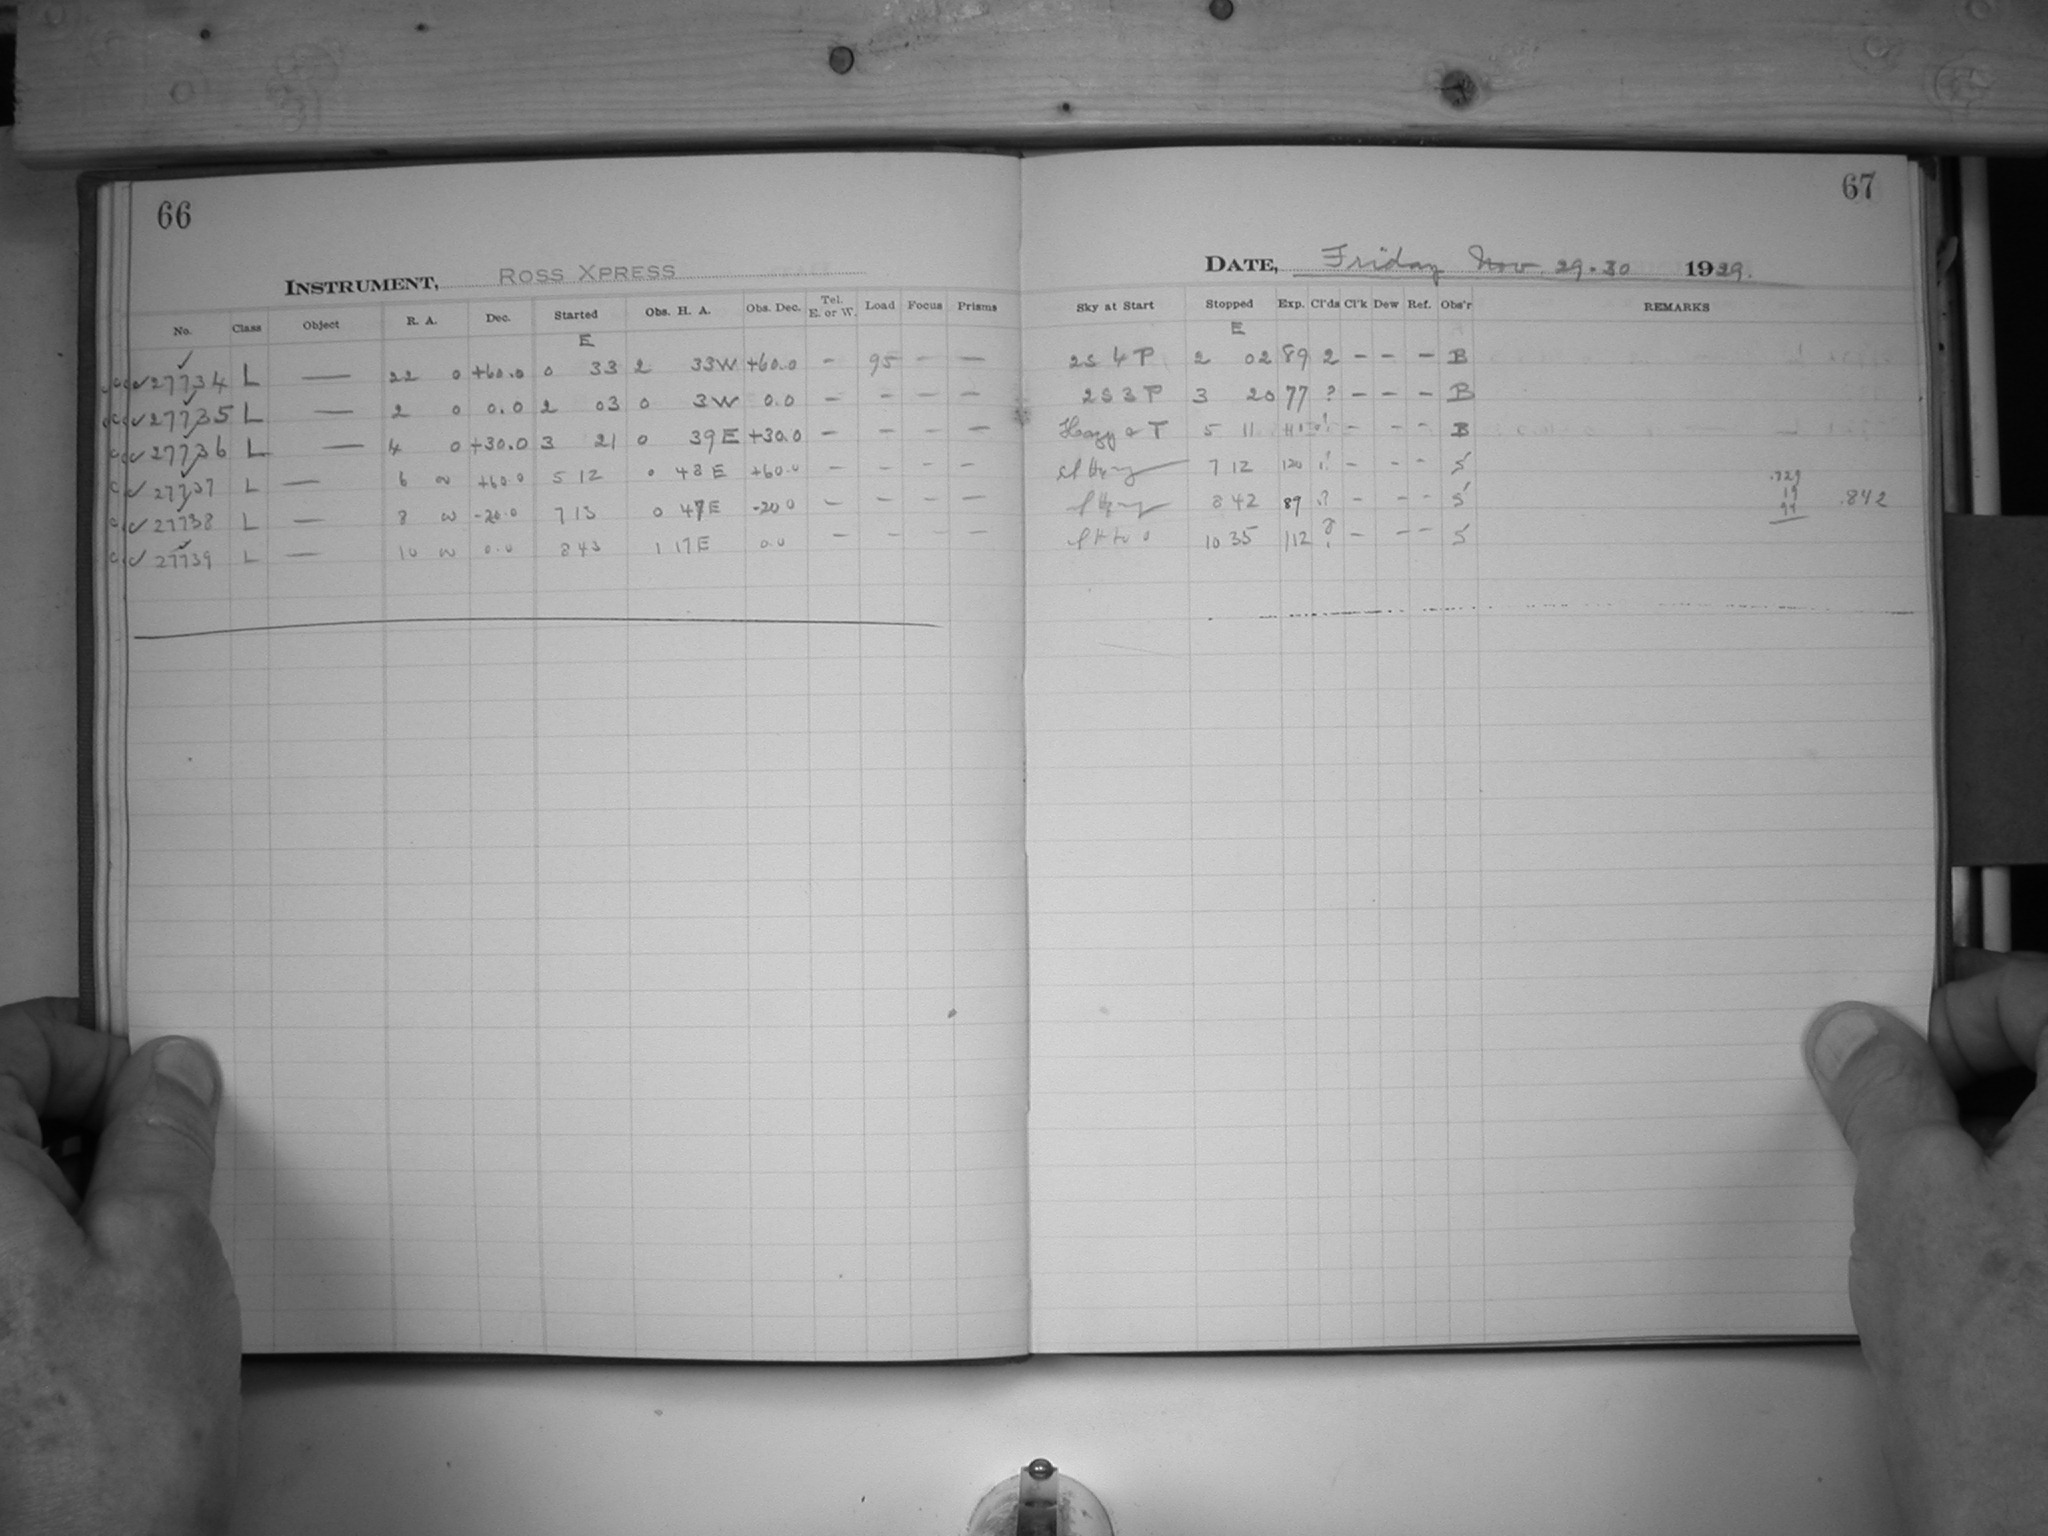 66
INSTRUMENT, ROSS XPRESS
No. Class Object R. A. Dec. Started Obs. H. A. Obs. Dec. Tel. E. or W. Load Focus Prisms
E
✓ 27734 L — 22 0 +60.0 0 33 2 33W +60.0 - 95 - -
✓ 27735 L — 2 0 0.0 2 03 0 3W 0.0 - - - -
✓ 27736 L — 4 0 +30.0 3 21 0 39E +30.0 - - - -
✓ 27737 L — 6 +60.0 5 12 0 48E +60.0 - - - -
✓ 27738 L — 8 -20.0 7 13 0 47E -20 0 - - - -
✓ 27739 L — 10 0.0 8 43 1 17E 0.0 - - - -
67
DATE, Friday Nov. 29-30 1929.
Sky at Start Stopped Exp. Cl'ds Cl'k Dew Ref. Obs'r REMARKS
E
2S 4 P 2 02 89 2 - - - B
2S 3 P 3 20 77 ? - - - B
Hazy & T 5 11 - - - B
7 12 120 - - - S
8 42 89 ? - - - S .842
10 35 112 ? - - - S